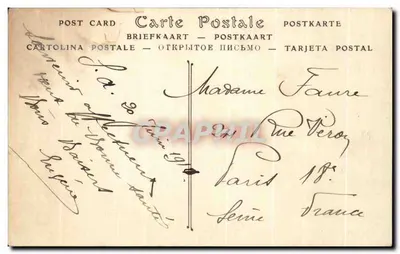 POST CARD Carte Postale POSTKARTE
BRIEFKAART — POSTKAART
CARTOLINA POSTALE — ОТКРЫТОЕ ПИСЬМО — TARJETA POSTAL
S. A. 20 Juin 19
Souvenir affectueux
tous en bonne santé
Bons Baisers
Eugène
Madame Faure
Rue Véron
Paris 18e
Seine France
CPARAMA